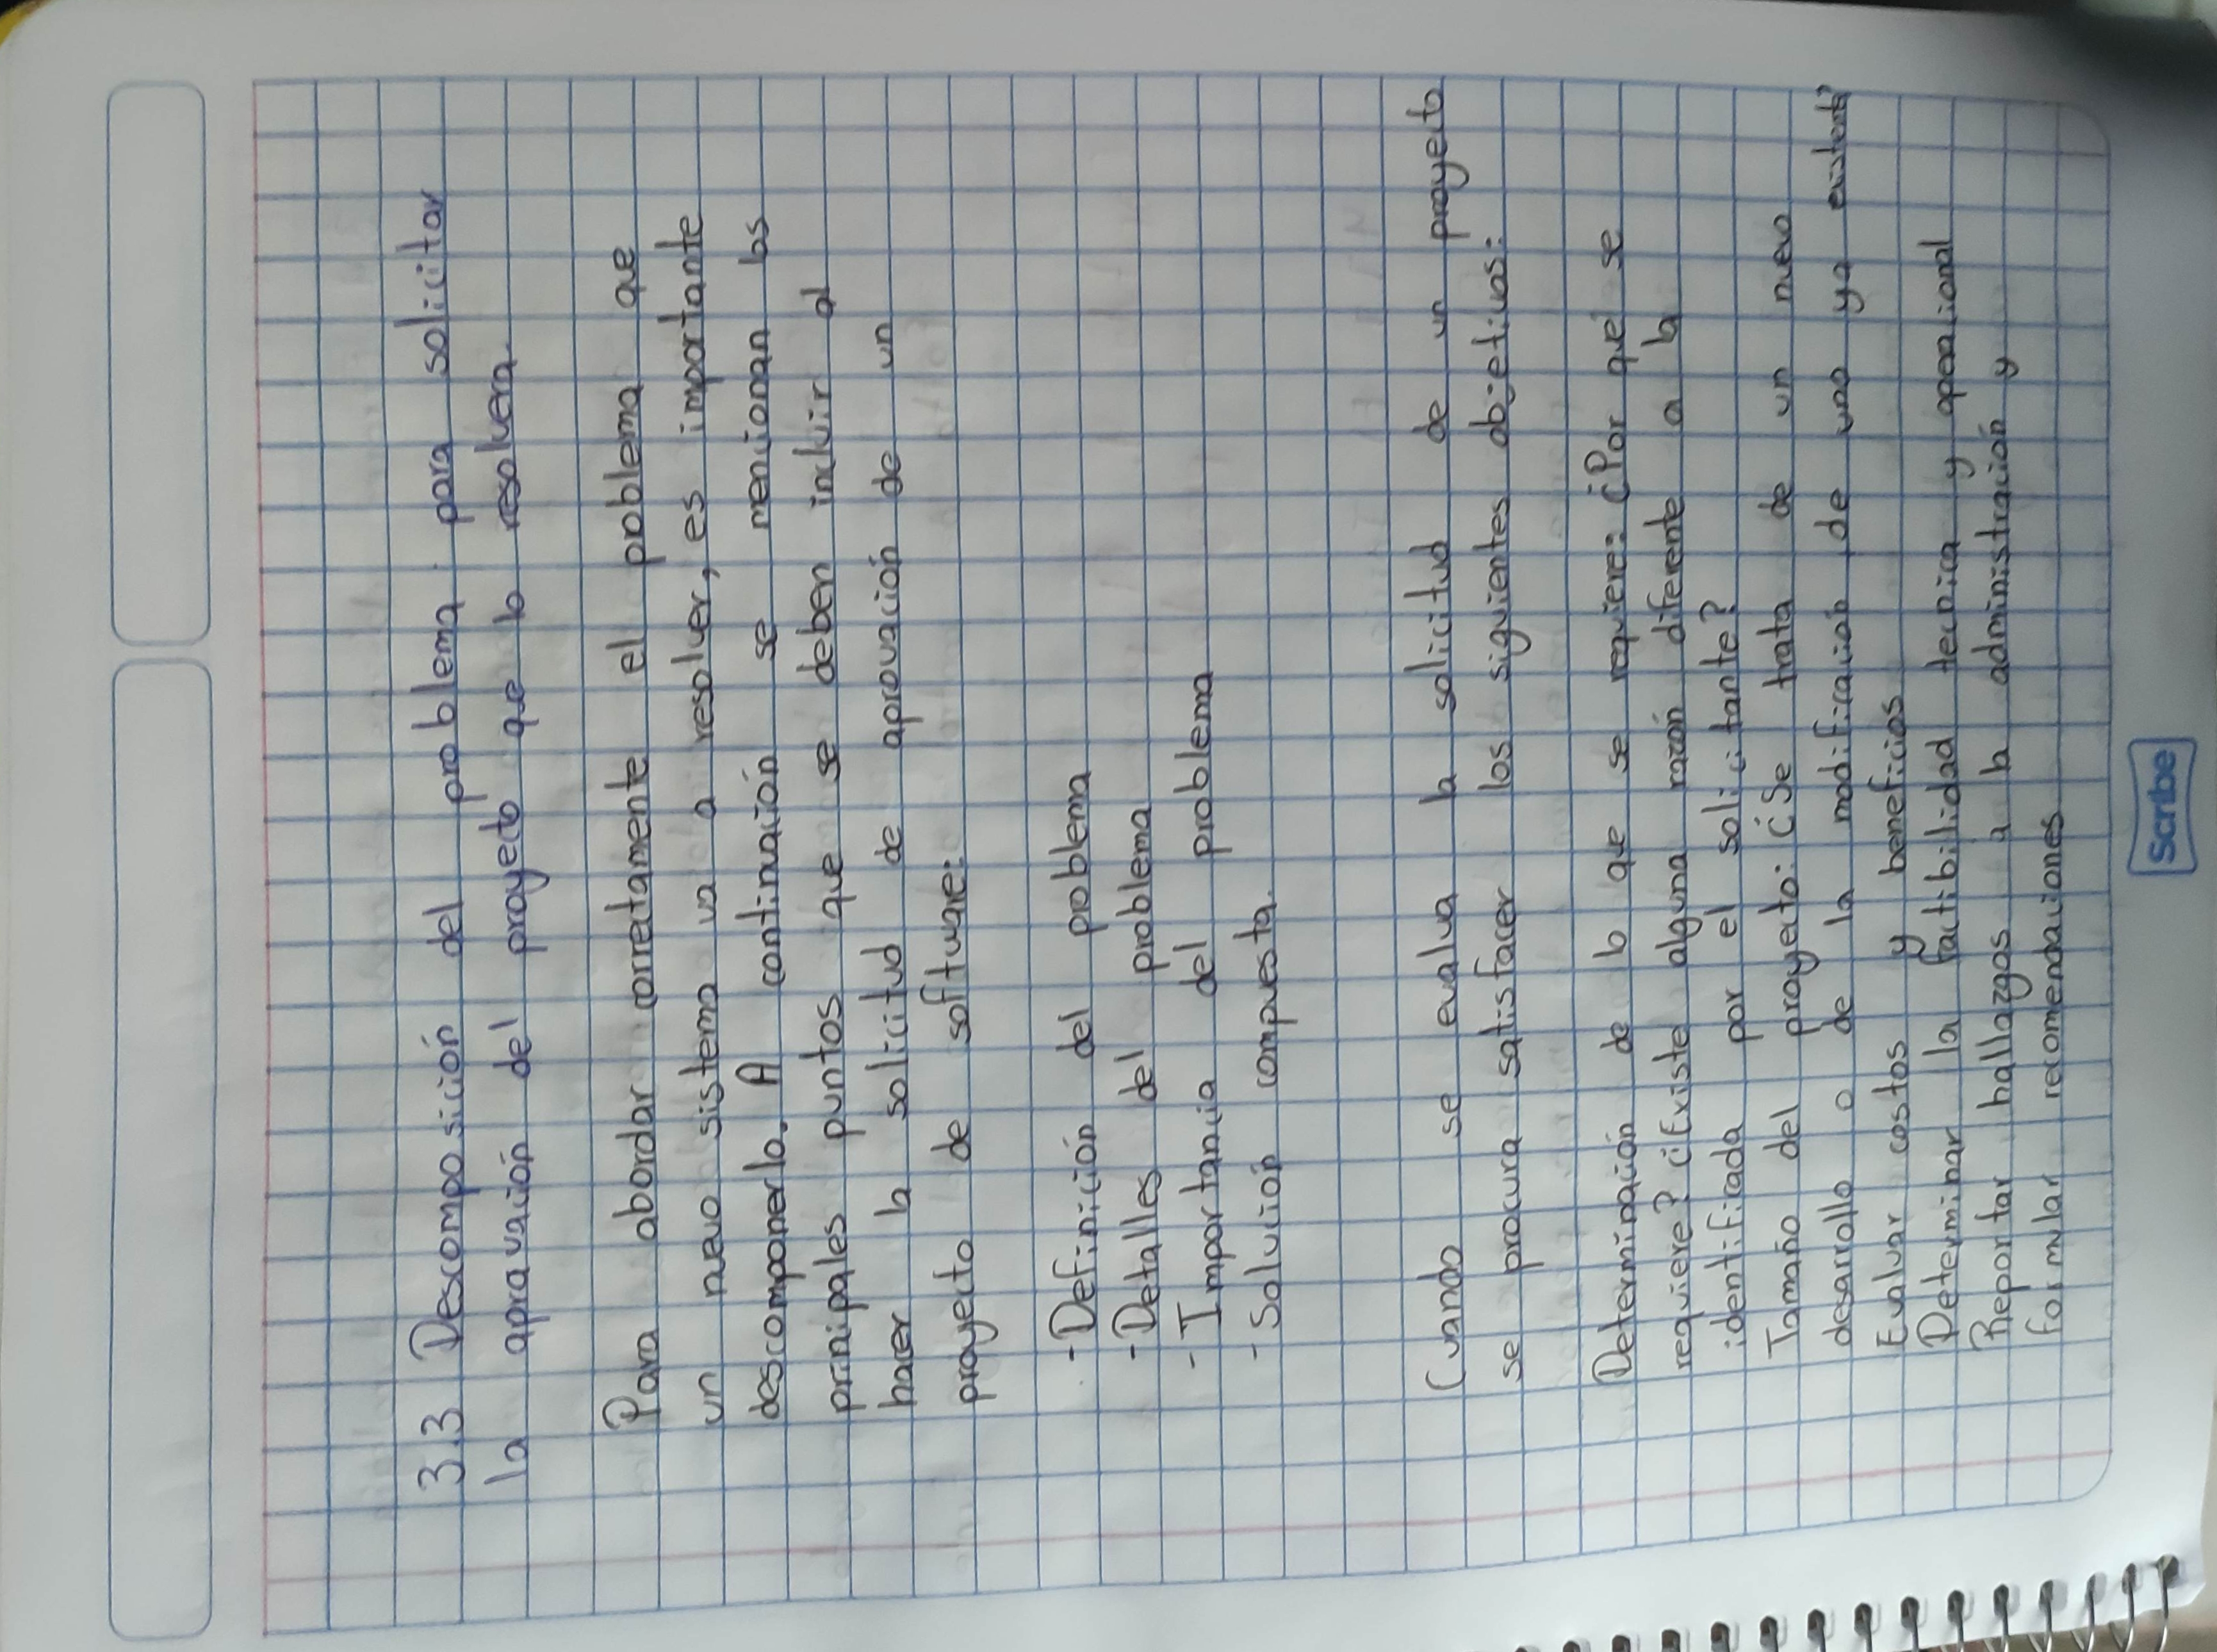 3.3 Descomposición del problema para solicitar
la apravación del proyecto que lo resolvera.
Para abordar correctamente el problema que
un nevo sistema va a resolver, es importante
descomponerlo. A continuación se mencionan los
prinipales puntos que se deben incluir al
hacer la solicitud de aprovación de un
proyecto de software:
-Definición del problema
-Detalles del problema
-Importancia del problema
-Solución compuesta.
Cuando se evalua la solicitud de un proyecto
se procura satisfacer los siguientes objetivos:
Determinación de lo que se requiere: ¿Por qué se
requiere? ¿Existe alguna razón diferente a la
identificada por el solicitante?
Tamaño del proyecto: ¿Se trata de un nuevo
desarrollo o de la modificación de uno ya existente?
Evaluar costos y beneficios
Determinar la factibilidad tecnica y operacional
Reportar hallazgos a la administración y
formular recomendaciones
Scribe